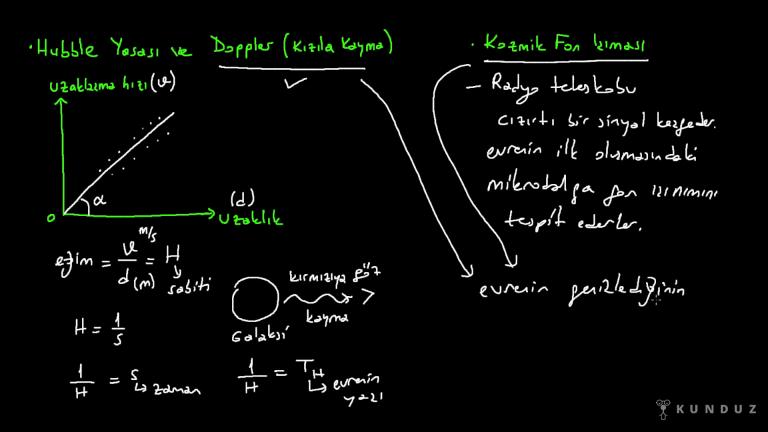 · Hubble Yasası ve Doppler (Kızıla Kayma)
uzaklaşma hızı (v)
α
0
(d)
uzaklık
eğim = v m/s / d (m) = H
sabiti
H = 1/s
1/H = s
zaman
kırmızıya
göz
kayma
Galaksi
1/H = T_H
evrenin
yaşı
· Kozmik Fon Işıması
– Radyo teleskobu
cızırtı bir sinyal keşfeder.
evrenin ilk oluşmasındaki
mikrodalga fon ışınımını
tespit ederler.
evrenin genişlediğinin
KUNDUZ